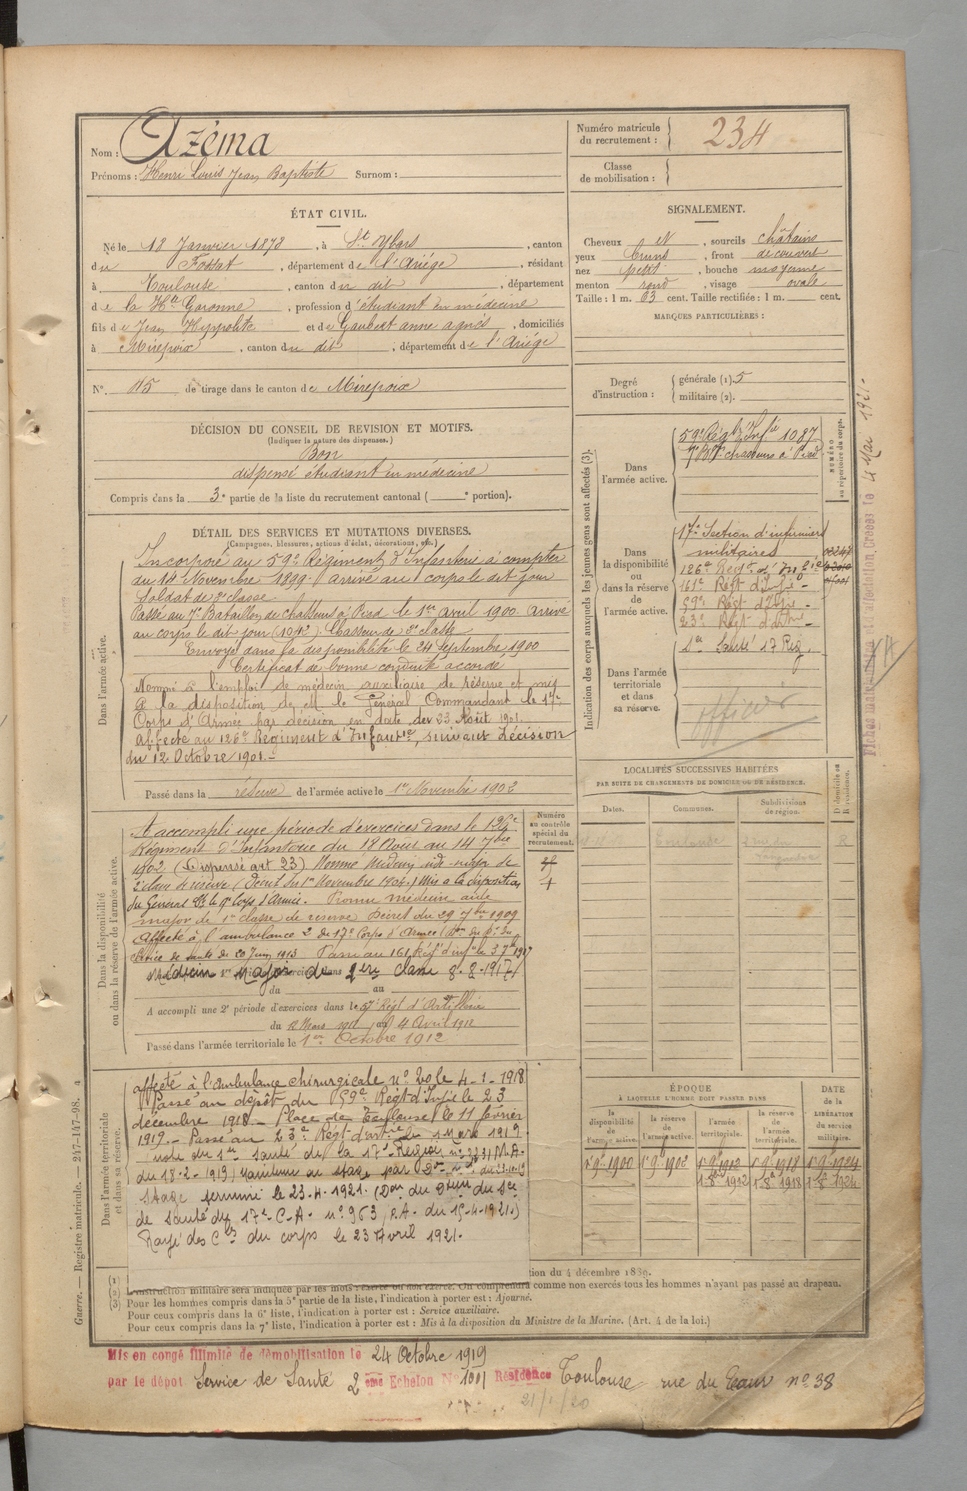 Nom : Azéma
Prénoms : Henri Louis Jean Baptiste Surnom :
Numéro matricule du recrutement : 234
Classe de mobilisation :
ÉTAT CIVIL.
Né le 18 Janvier 1878, à St Ybars, canton
du Fossat, département de l'Ariége, résidant
à Toulouse, canton du dit, département
de la Hte Garonne, profession d'étudiant en médecine
fils de Jean Hyppolite et de Gaubert anne agnès, domiciliés
à Mirepoix, canton du dit, département de l'Ariége
N° 115 de tirage dans le canton de Mirepoix
SIGNALEMENT.
Cheveux et, sourcils châtains
yeux bruns, front découvert
nez petit, bouche moyenne
menton rond, visage ovale
Taille : 1 m. 63 cent. Taille rectifiée : 1 m. cent.
MARQUES PARTICULIÈRES :
Degré d'instruction : générale (1). 5
militaire (2).
DÉCISION DU CONSEIL DE REVISION ET MOTIFS.
(Indiquer la nature des dispenses.)
Bon
dispensé étudiant en médecine
Compris dans la 3e partie de la liste du recrutement cantonal ( e portion).
DÉTAIL DES SERVICES ET MUTATIONS DIVERSES.
(Campagnes, blessures, actions d'éclat, décorations, etc.)
Dans l'armée active.
Incorporé au 59e Régiment d'Infanterie à compter
du 14 Novembre 1899. arrivé au corps le dit jour
Soldat de 2e classe
Passé au 7e Bataillon de chasseurs à Pied le 1er avril 1900 arrivé
au corps le dit jour Chasseur de 2e classe
Envoyé dans la disponibilité le 24 Septembre 1900
Certificat de bonne conduite accordé
Nommé à l'emploi de médecin auxiliaire de réserve et mis
à la disposition de M le Général Commandant le 17e
Corps d'Armée par décision en date du 23 Août 1901.
affecté au 126e Régiment d'Infanterie, suivant décision
du 12 Octobre 1901.
Passé dans la réserve de l'armée active le 1er Novembre 1902
Indication des corps auxquels les jeunes gens sont affectés (3).
NUMÉRO au répertoire du corps.
Dans l'armée active.
59e Régt d'Infie 1087
7e Bon chasseurs à Pied
Dans la disponibilité ou dans la réserve de l'armée active.
17e Section d'infirmiers
militaires
126e Régt d'Infie
161e Régt d'Infie
59e Régt d'Infie
23e Régt d'Artie
Dans l'armée territoriale et dans sa réserve.
Santé 17 Rég.
officier
Fiches
4 Mai 1921
LOCALITÉS SUCCESSIVES HABITÉES
PAR SUITE DE CHANGEMENTS DE DOMICILE OU DE RÉSIDENCE.
Dates. Communes. Subdivisions de région. D domicile ou R résidence.
Toulouse R
Dans la disponibilité ou dans la réserve de l'armée active.
Numéro au contrôle spécial du recrutement.
A accompli une période d'exercices dans le 126e
Régiment d'Infanterie du 18 Août au 14 7bre
1902 (Dispensé art 23) Nommé Médecin aide-major de
2e classe de réserve (Décret du 1er Novembre 1904) Mis à la disposition
du Général Ct le 17e Corps d'Armée. Promu médecin aide
major de 1re classe de réserve Décret du 29 7bre 1909
Affecté à l'ambulance 2 du 17e Corps d'Armée
service de santé du 20 Juin 1913 Passé au 161 Rég d'inf le
Médecin Major de 2ème classe 8-8-1917
du au
A accompli une 2e période d'exercices dans le 57e Régt d'Artillerie
du 12 Mars 1912 au 4 Avril 1912
Passé dans l'armée territoriale le 1er Octobre 1912
Dans l'armée territoriale et dans sa réserve.
affecté à l'Ambulance chirurgicale n° 20 le 4-1-1918
Passé au dépôt du 59e Régt d'Infie le 23
décembre 1918. Place de Toulouse le 11 février
1919. Passé au 23e Régt d'art.ie le 1 Mars 1919
de la 17e Région
du 18-2-1919) Maintenu au stage par
Stage terminé le 23.4.1921. (Don du Dteur du Sce
de santé du 17e C-A. n° 963 P.A. du 15-4-1921.)
Rayé des Ctes du corps le 23 Avril 1921.
ÉPOQUE
À LAQUELLE L'HOMME DOIT PASSER DANS
la disponibilité de l'armée active. la réserve de l'armée active. l'armée territoriale. la réserve de l'armée territoriale.
DATE de la LIBÉRATION du service militaire.
1er 9bre 1900 1er 9bre 1902 1er 9bre 1912 1er 9bre 1918 1er 9bre 1924
1er 8bre 1912 1er 8bre 1918 1er 8bre 1924
Guerre. — Registre matricule. — 247-147-98. 4
instruction militaire sera indiquée par les mots : exercé ou non exercé. On comprendra comme non exercés tous les hommes n'ayant pas passé au drapeau.
Pour les hommes compris dans la 5e partie de la liste, l'indication à porter est : Ajourné.
Pour ceux compris dans la 6e liste, l'indication à porter est : Service auxiliaire.
Pour ceux compris dans la 7e liste, l'indication à porter est : Mis à la disposition du Ministre de la Marine. (Art. 4 de la loi.)
Mis en congé illimité de démobilisation le 24 Octobre 1919
par le dépot Service de Santé 2 eme Echelon N° 1001 Résidence Toulouse rue du Taur n° 38
21/1/20